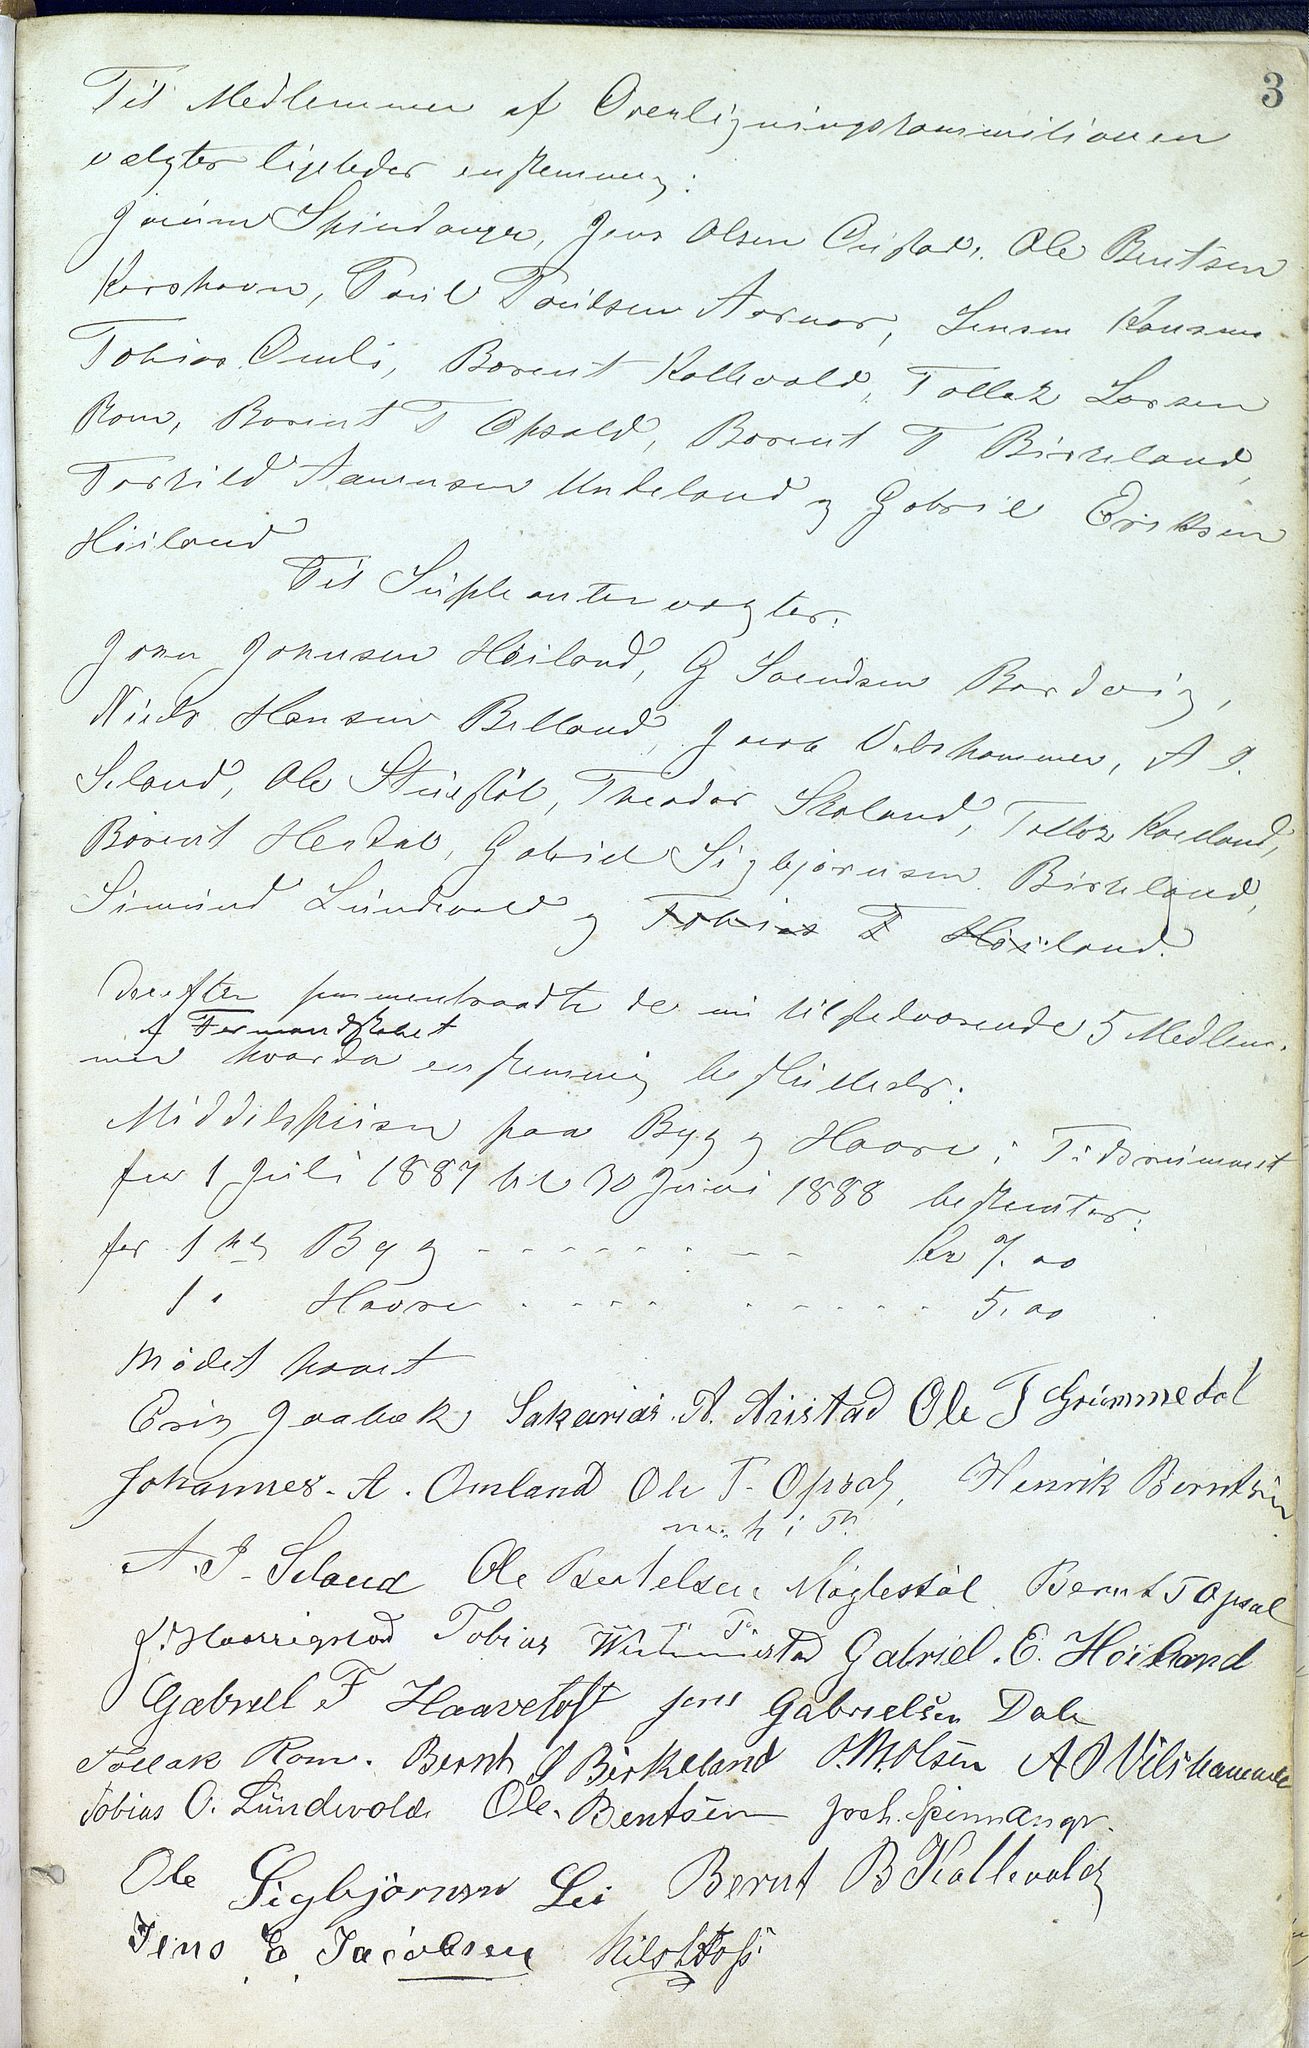 3
Til Medlemmer af Overligningskommisionen
valgtes ligeledes enstemmig:
Jocum Spindanger, Jens Olsen Ole Bentsen
Korshavn, Poul Poulsen Aarnes, Jensen
Tobias Omli, Børent Kallevold, Tollak Larsen
Rom, Børent T Opsald, Børent T Birkeland,
Torkild Aanensen Underland og Gabriel Eriksen
Høiland
Til Supleanter valgtes:
John Johnsen Høiland, G Svendsen Bordvig,
Niels Hansen Billand, Jacob Vilshammer, A J.
Seland, Ole Stuestøl, Theodor Skoland, Tollak Kvelland,
Børent Hestdal, Gabriel Sigbjørnsen Birkeland,
Simund Lundevold og Tobias T Høiland.
Derefter sammentraadte de nu tilstedværende 5 Medlem-
af Formandskabet
mer hvorda enstemmig besluttedes:
Middelsprisen paa Byg og Havre i Tidsrummet
fra 1 Juli 1887 til 30 Juni 1888 bestemtes:
for 1 hl Byg - - - - - - - - Kr 7.00
1 " Havre - - - - - - - - - 5.00
Mødet hævet
Erik Jaabæk Sakarias. A. Aristad Ole T Grimmedal
Johannes. A. Omland Ole T. Opsal, Henrik Berntsen
m. h. i P.
A. J. Seland Ole Bertelsen Møglestøl Bernt T Opsal
J. Haarrigstad Tobias Gabriel. E. Høiland
Gabriel F Haavetoft Jens Gabrielsen Dale
Tollak Rom. Bernt T Birkeland O. M. Olsen A J Vilshammer
Tobias O. Lundevold Ole. Bentsen Joch. Spinnangr.
Ole Sigbjørnsen Lei Bernt B Kallevold
Jens E. Jacobsen